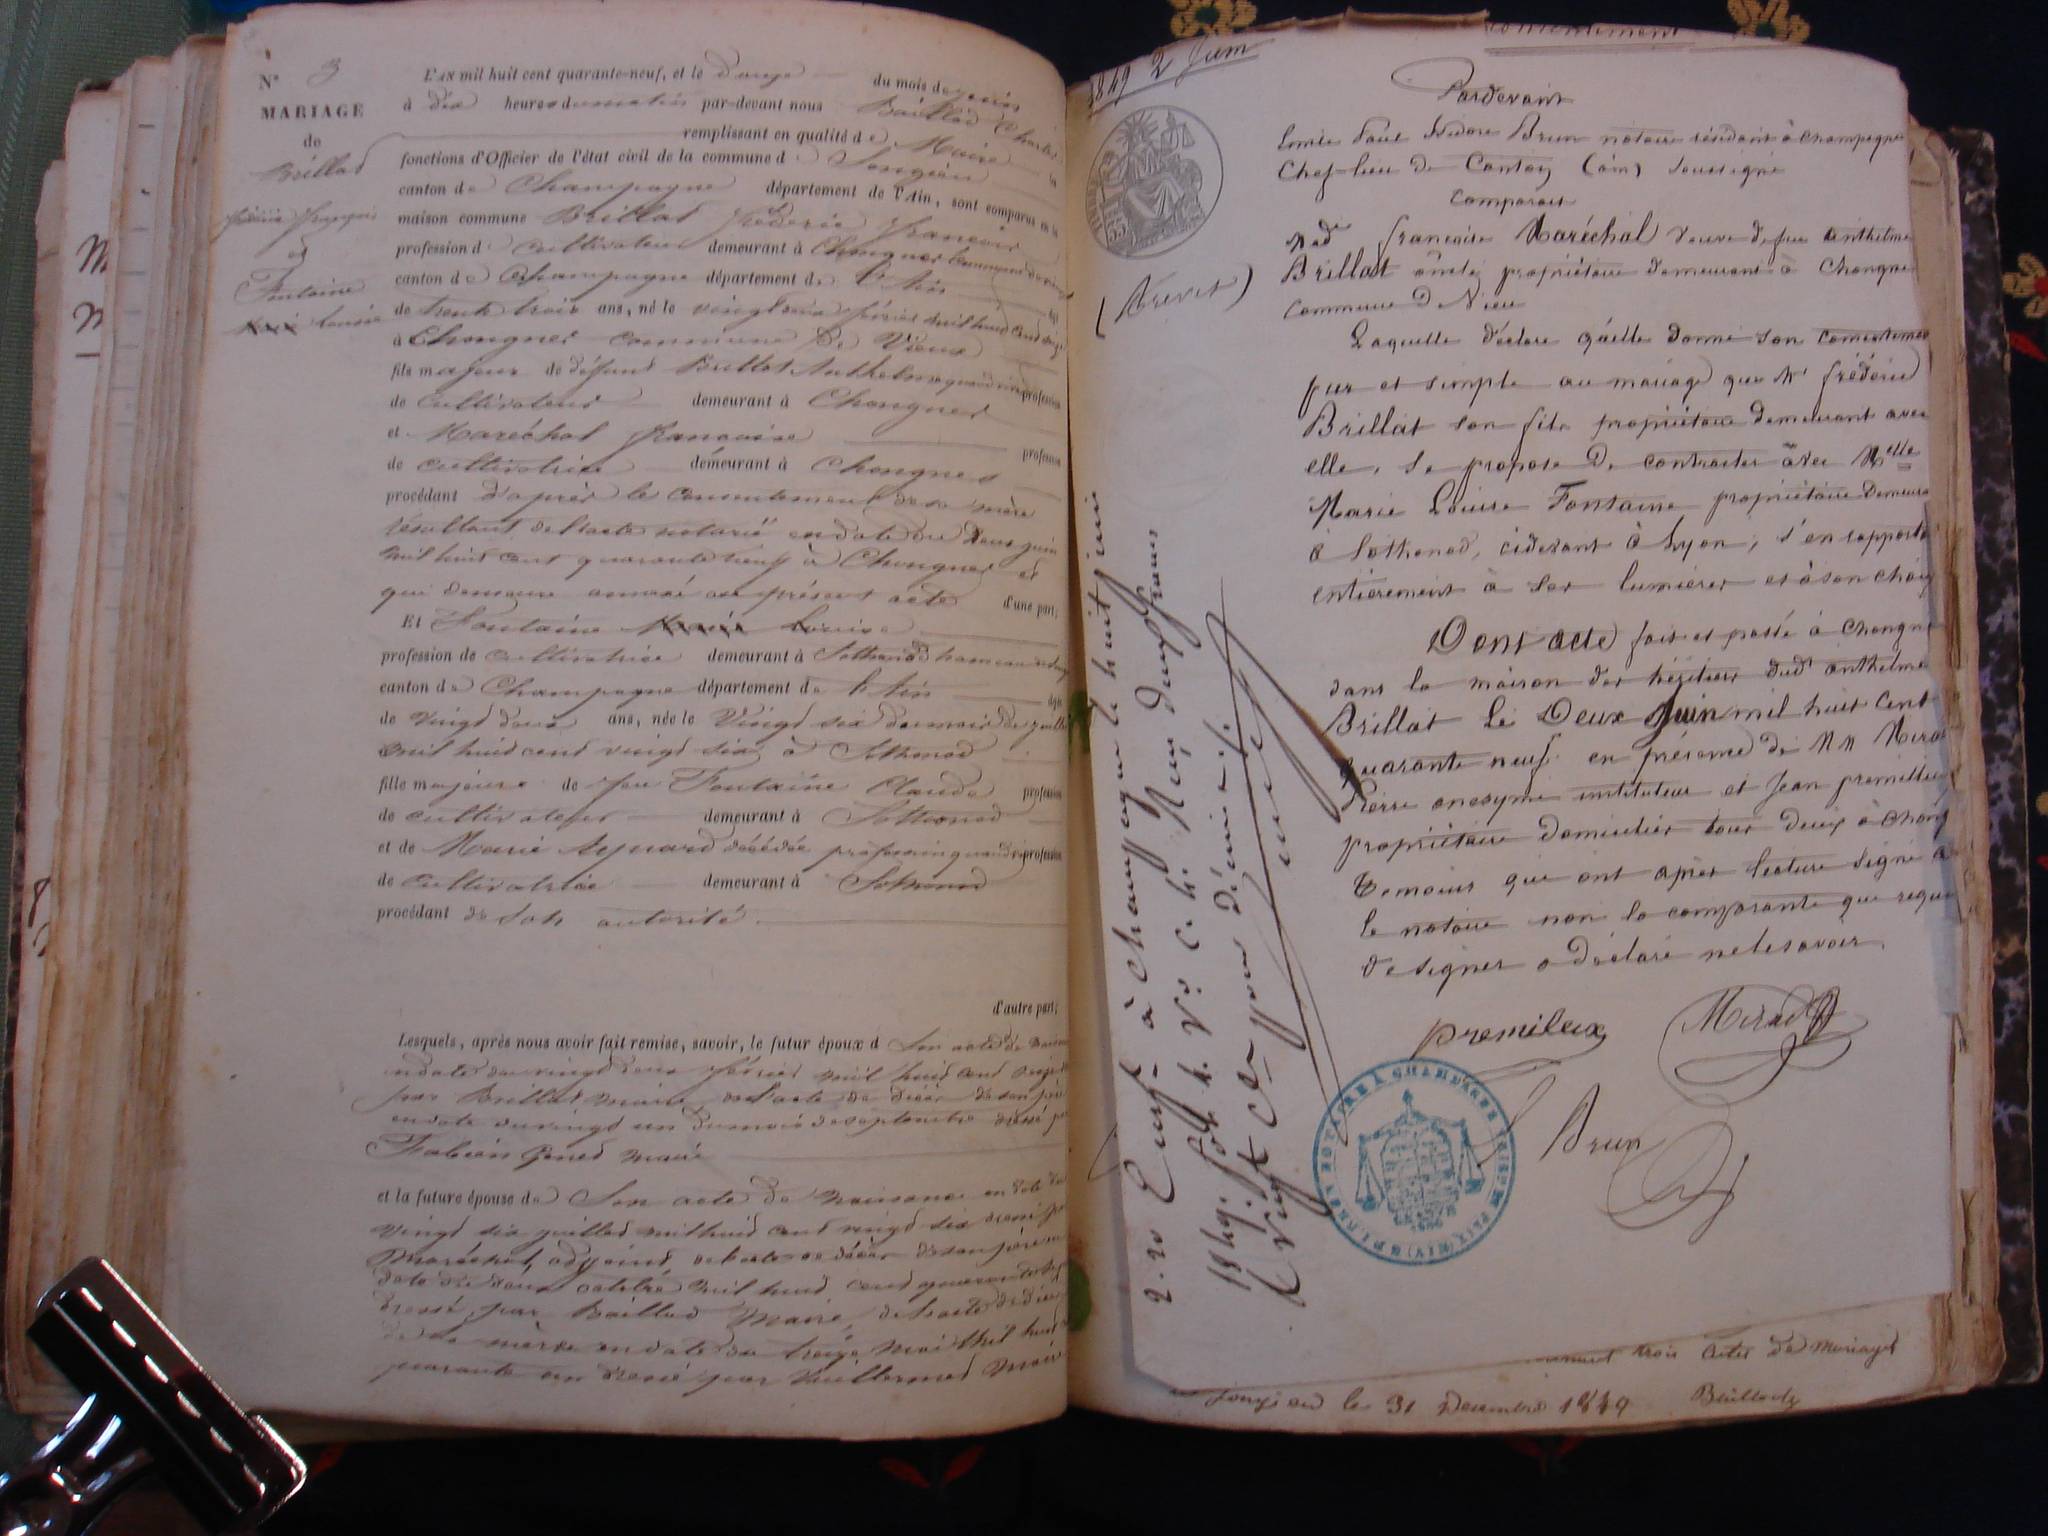 N° 3
MARIAGE
de
Brillat
frédéric françois
et
Fontaine
Louise
L'AN mil huit cent quarante-neuf, et le Douze du mois de juin
à dix heures du matin par-devant nous Baillod Charles
remplissant en qualité de Maire les
fonctions d'Officier de l'état civil de la commune de Songieu
canton de Champagne département de l'Ain, sont comparus en la
maison commune Brillat frédéric françois
profession de cultivateur demeurant à Chongnes commune de vieu
canton de Champagne département de l'Ain
de trente trois ans, né le vingt février mil huit cent seize
à Chongnes commune De Vieux
fils majeur de défunt Brillat Anthelme quand vivait profession
de cultivateur demeurant à Chongnes
et Maréchal françoise profession
de cultivatrice demeurant à Chongnes
procédant d'après le consentement de sa mère
résultant de l'acte notarié en date du Deux juin
mil huit cent quarante neuf à Chongnes et
qui demeure annexé au présent acte d'une part;
Et Fontaine Louise
profession de cultivatrice demeurant à Sothonod hameau de
canton de Champagne département de l'Ain
de vingt deux ans, née le Vingt six du mois de juillet
mil huit cent vingt six à Sothonod
fille majeure de feu Fontaine Claude profession
de cultivateur demeurant à Sothonod
et de Marie décédée profession
de cultivatrice demeurant à Sothonod
procédant de son autorité
d'autre part;
Lesquels, après nous avoir fait remise, savoir, le futur époux d son acte de
en date du vingt deux février mil huit cent seize
par Brillat maire, de l'acte de décès de son père
en date du vingt un du mois de septembre dressé par
Fabien maire
et la future épouse de Son acte de naissance en date du
vingt six juillet mil huit cent vingt six dressé par
Maréchal, adjoint, de l'acte de décès de son père en
date du deux octobre mil huit cent quarante
dressé par Baillod Maire, de l'acte de décès
de sa mère en date du treize mai mil huit
quarante un dressé par Vuillermet Maire
Consentement
1849 2 Juin
Pardevant
Emile Paul Isidore Brun notaire résidant à Champagne
Chef-lieu de Canton (ain) soussigné
Comparait
Made françoise Maréchal veuve de feu anthelme
Brillat propriétaire demeurant à Chongne
commune de Vieu
(Brevet)
Laquelle déclare qu'elle donne son consentement
pur et simple au mariage que Mr frédéric
Brillat son fils propriétaire demeurant avec
elle, se propose de contracter avec Melle
Marie Louise Fontaine propriétaire demeurant
à Sothonod, cidevant à Lyon, s'en rapporte
entièrement à ses lumières et à son choix
Dont acte fait et passé à Chongne
dans la maison des héritiers dud anthelme
Brillat Le Deux Juin mil huit cent
quarante neuf en présence de MM
Pierre onesyme instituteur et Jean premillieu
propriétaire domiciliés tous deux à Chong
témoins qui ont après lecture signé
le notaire non la comparante que requise
de signer a déclaré ne le savoir
premileux
Brun
Enreg. à Champagne le huit juin
1849. fol. V° c. Reçu deux francs
vingt c. pour décime
trois actes de mariages
songieu le 31 Decembre 1849